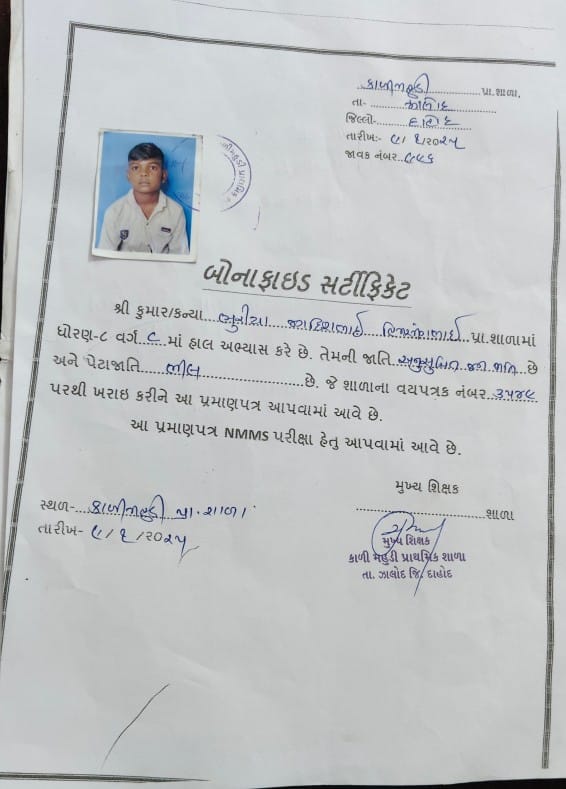 કાળીમહુડી પ્રા.શાળા.
તા- ઝાલોદ
જિલ્લો- દાહોદ
તારીખ:- ૯/૧/૨૦૨૫
જાવક નંબર..
બોનાફાઇડ સર્ટીફિકેટ
શ્રી કુમાર/કન્યા...ભુરીયા ... પ્રા.શાળામાં
ધોરણ-૮ વર્ગ ... માં હાલ અભ્યાસ કરે છે. તેમની જાતિ અનુસુચિત જન જાતિ છે
અને પેટાજાતિ ભીલ છે. જે શાળાના વયપત્રક નંબર ૩૫૪૯
પરથી ખરાઇ કરીને આ પ્રમાણપત્ર આપવામાં આવે છે.
આ પ્રમાણપત્ર NMMS પરીક્ષા હેતુ આપવામાં આવે છે.
મુખ્ય શિક્ષક
શાળા
સ્થળ- કાળીમહુડી પ્રા.શાળા
તારીખ- ૯/૧/૨૦૨૫
મુખ્ય શિક્ષક
કાળી મહુડી પ્રાથમિક શાળા
તા. ઝાલોદ જિ. દાહોદ